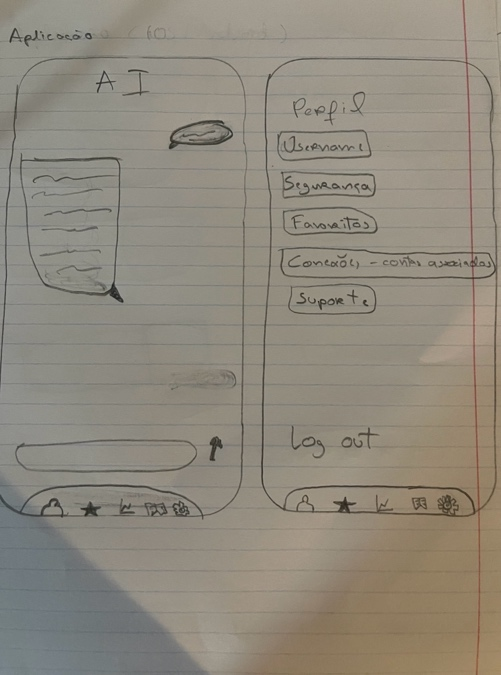 Aplicação
AI
Perfil
Username
Segurança
Favoritos
Conexões - contas associadas
Suporte
Log out